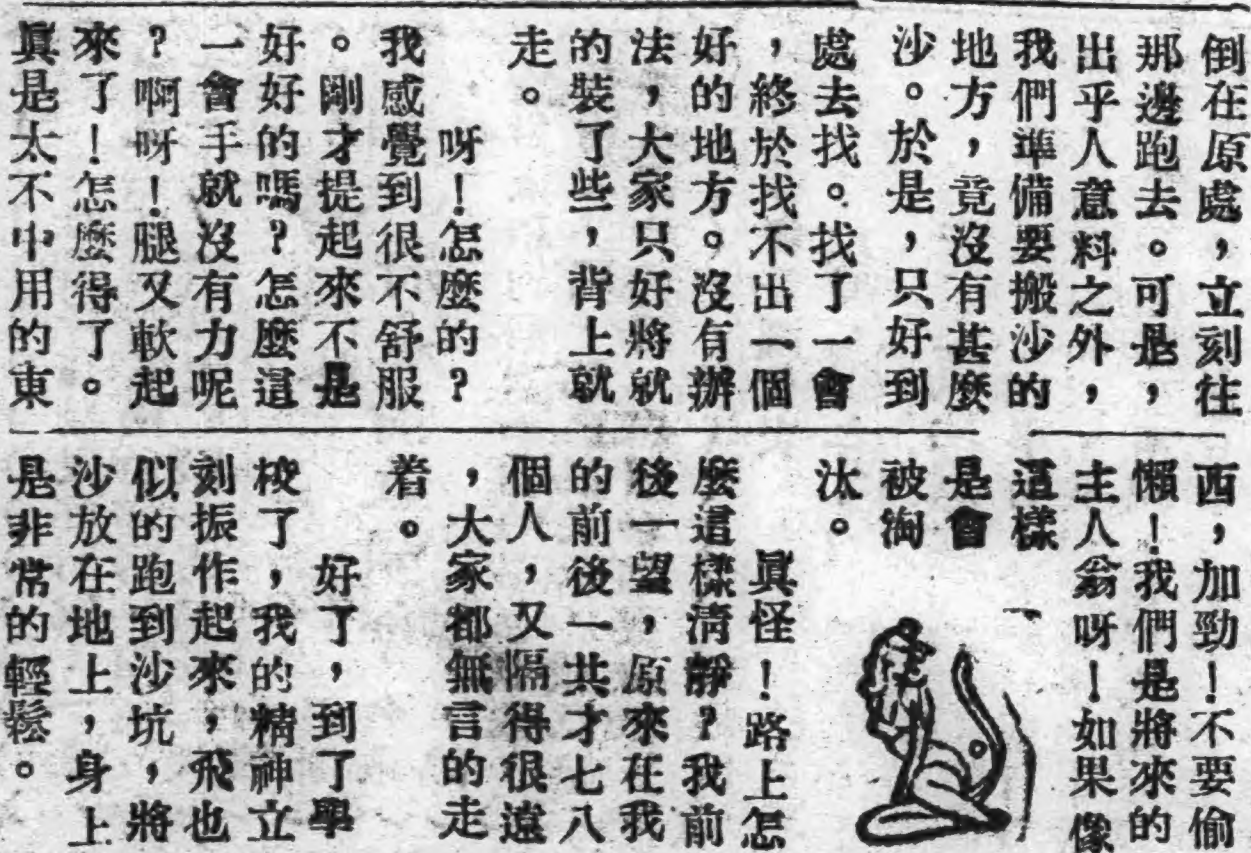 倒在原處，立刻往
那邊跑去。可是，
出乎人意料之外，
我們準備要搬沙的
地方，竟沒有甚麼
沙。於是，只好到
處去找。找了一會
，終於找不出一個
好的地方。沒有辦
法，大家只好將就
的裝了些，背上就
走。
呀！怎麼的？
我感覺到很不舒服
。剛才提起來不是
好好的嗎？怎麼這
一會手就沒有力呢
？啊呀！腿又軟起
來了！怎麼得了。
眞是太不中用的東
西，加勁！不要偷
懶！我們是將來的
主人翁呀！如果像
這樣
是會
被淘
汰。
眞怪！路上怎
麼這樣清靜？我前
後一望，原來在我
的前後一共才七八
個人，又隔得很遠
，大家都無言的走
着。
好了，到了學
校了，我的精神立
刻振作起來，飛也
似的跑到沙坑，將
沙放在地上，身上
是非常的輕鬆。